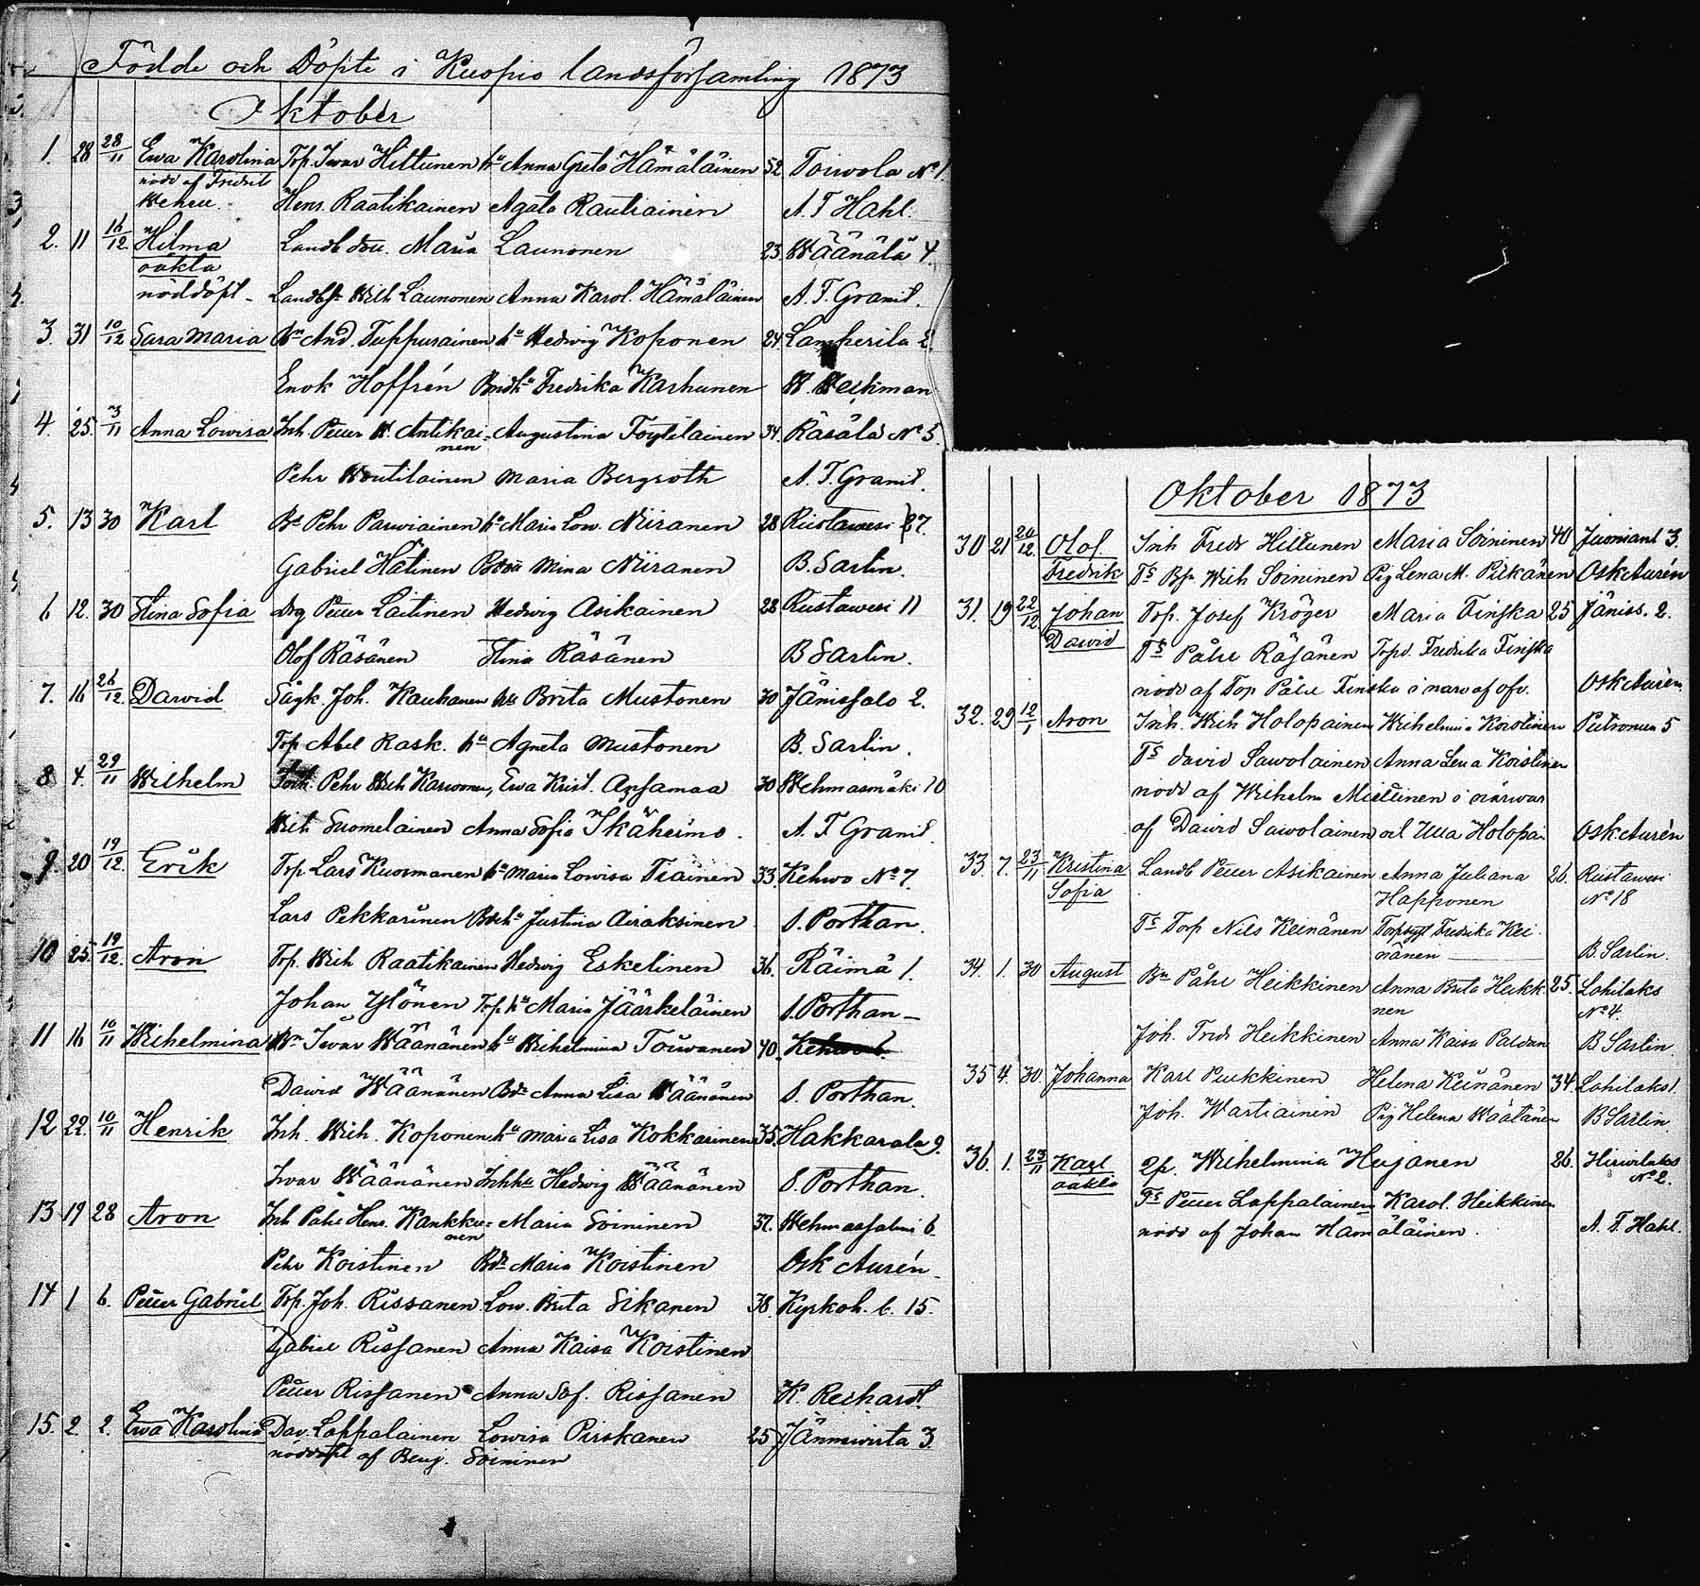 Födde och Döpte i Kuopio landsförsamling 1873
Oktober
1. 28 28/11 Ewa Karolina Torp. Iwar Hiltunen hu Anna Greta Hämäläinen 32 Toiwola No 1.
nöd. af Fredrik
Henr. Raatikainen Agata Rautiainen A. F. Hahl.
2. 11 16/12 Hilma Landb. dotr. Maria Launonen 23. Wäänälä 4.
oäkta
nöddöpt Wilh Launonen Anna Karol. Hämäläinen A. F. Granit.
3. 31 10/12 Sara Maria And. Tuppurainen hu Hedwig Koponen 24 Lamperila 2.
Enok Hoffrén Fredrika Karhunen W. Beckman
4. 25. 3/11 Anna Lowisa Inh. Petter W. Antikai- Augustina Föytilainen 34. Räsälä No 5.
nen
Pehr Woutilainen Maria Bergroth A. F. Granit.
5. 13 30 Karl Bd Pehr Parwiainen hu Maria Low. Niiranen 28 Ristawesi 27.
Gabriel Hätinen Mina Niiranen B. Sarlin.
6 12. 30 Stina Sofia drg Petter Laitinen Hedwig Asikainen 28 Ristawesi 11
Olof Räsänen Stina Räsänen B Sarlin.
7. 16 26/12. Dawid Sågk. Joh. Kauhanen Brita Mustonen 30 Jänissalo 2.
Torp Abel Rask. hu Agneta Mustonen B. Sarlin.
8. 4. 29/11 Wilhelm Pehr Wilh Karwonen, Ewa Krist. Apsamaa 30 Wehmasmäki 10
Wilh Suomelainen Anna Sofia Ikäheimo. A. F Granit.
9. 20 19/12. Erik Torp Lars Kuosmanen hu Maria Lowisa Tiainen 33. Kehwo No 7.
Lars Pekkarinen Justina Airaksinen S. Porthan.
10 25. 19/12. Aron Torp. Wilh Raatikainen Hedwig Eskelinen 36. Räimä 1.
Johan Ylönen Torp. hu Maria Jääskeläinen S. Porthan
11 16 10/11 Wilhelmina Bn Iwar Wäänänen hu Wilhelmina Toiwanen 40.
Dawid Wäänänen Anna Lisa Wäänänen S. Porthan.
12 22. 10/11 Henrik Inh. Wilh. Koponen hu Maria Lisa Kokkarinen 35. Hakkarala 9.
Iwar Wäänänen Inhhu Hedwig Wäänänen S. Porthan.
13 19 28 Aron Inh Påhl Henr. Kankku- Maria Soininen 37. Wehmassalmi 6.
nen
Pehr Koistinen Maria Koistinen Osk Aurén
14 1 6. Petter Gabriel Torp. Joh. Rissanen Low. Brita Sikanen 38. Kyrkoh. b. 15.
Gabriel Rissanen Anna Kaisa Koistinen
Petter Rissanen Anna Sof. Rissanen K. Rechardt.
15. 2. 2. Ewa Karolina Dav. Lappalainen Lowisa Pirskanen 25 Jännewirta 3.
nöddöpt af Benj. Soininen
Oktober 1873
30 21 20/12. Olof Inh Fredr Hiltunen Maria Soininen 40 3.
Fredrik Ts Wilh Soininen Pig Lena M. Pitkänen Osk Aurén
31. 19 22/12. Johan Torp. Josef Kröger Maria Finska 25 Jäniss. 2.
Dawid Ts Påhl Räsänen Fredrika Finska
nödd af Torp Påhl Finska i närw af ofv. Osk Aurén
32. 29 12/1 Aron Inh. Wilh Holopainen Wilhelmina Koistinen 5
Ts David Sawolainen Anna Lena Koistinen
nödd af Wilhelm Miettinen i närwar
af Dawid Sawolainen och Ulla Holopai- Osk Aurén
33. 7. 23/11 Kristina Landb Petter Asikainen Anna Juliana 26. Ristawesi
Sofia Happonen No 18
Ts Torp Nils Keinänen Fredrika Kei-
nänen B. Sarlin.
34. 1. 30 August Bn Påhl Heikkinen Anna Brita Heikk- 25. Lahilaks
nen No 4.
Joh. Fredr Heikkinen Anna Kaisa B Sarlin.
35 4. 30. Johanna Karl Puikkinen Helena Keinänen 34. Lahilaks 1.
Joh. Wartiainen Pig Helena Wäätänen B Sarlin.
36. 1. 23/11 Karl Qp. Wilhelmina Hujanen 26. Hirwilaks
oäkta No 2.
Ts Petter Lappalainen Karol. Heikkinen
nödd af Johan Hämäläinen. A. F. Hahl.